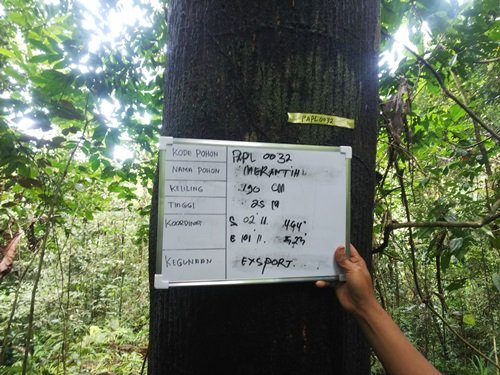 PAPL0032
KODE POHON PAPL 0032
NAMA POHON MERANTIH
KELILING 190 CM
TINGGI 25 M
KOORDINAT S 02° 11. 444"
E 101° 11.
KEGUNAAN EXSPORT.